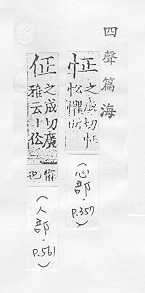 四聲篇海
怔 之成切怔
忪懼
(心部.P.357)
佂 之成切廣
雅云丨伀
懼也
(人部.P.561)